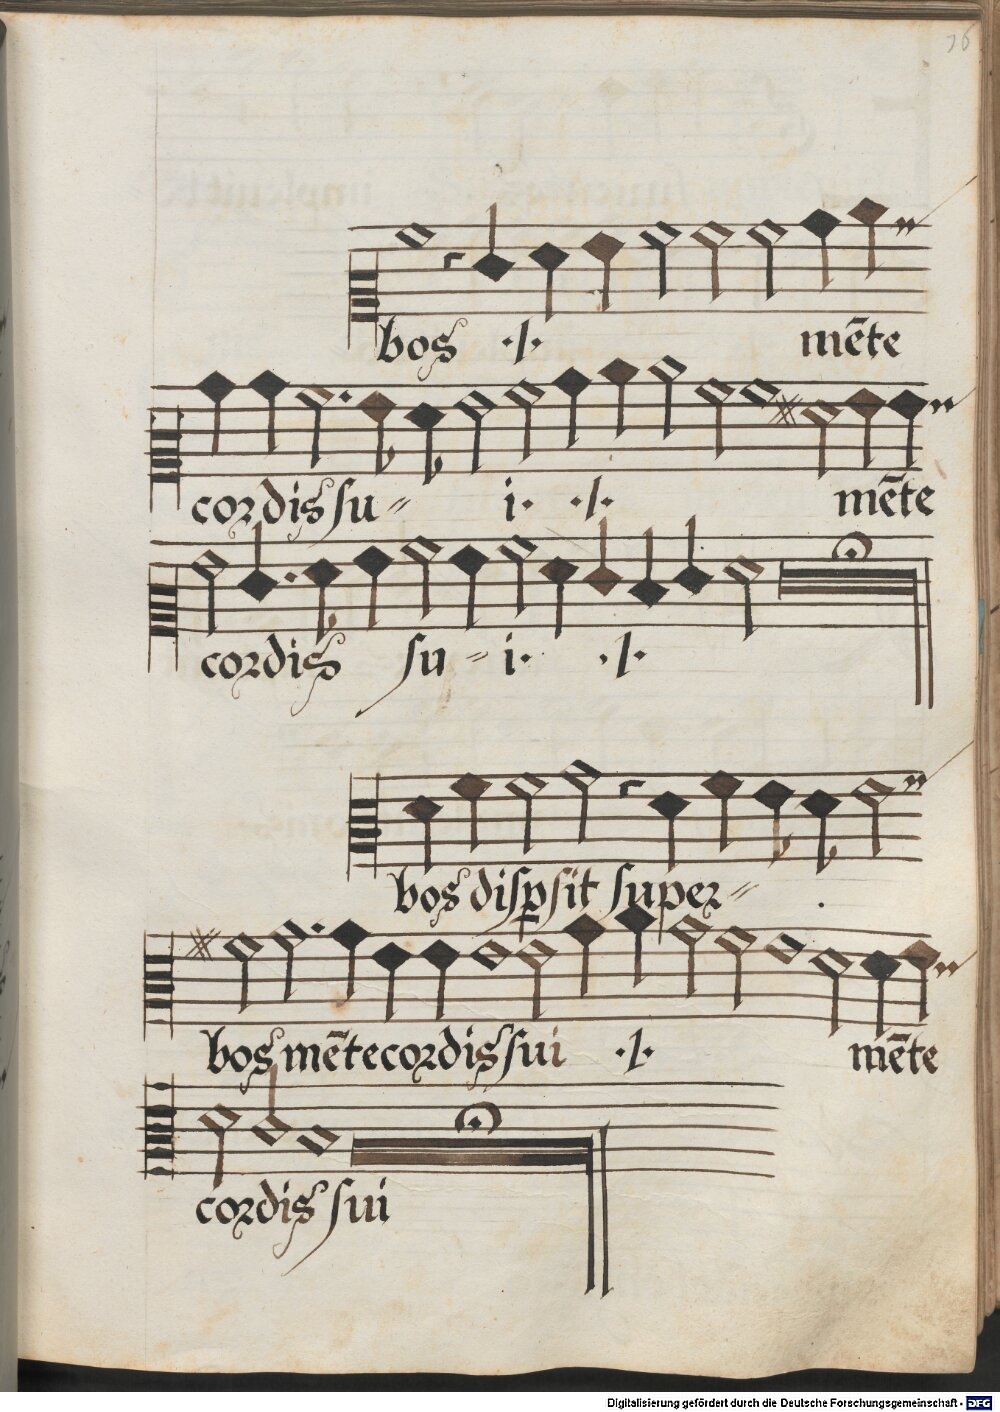 76
bos ·/· mēte
cordis su= i· ·/· mēte
cordis su = i· ·/·
bos disꝑsit super=
bos mēte cordis sui ·/· mēte
cordis sui
Digitalisierung gefördert durch die Deutsche Forschungsgemeinschaft - DFG